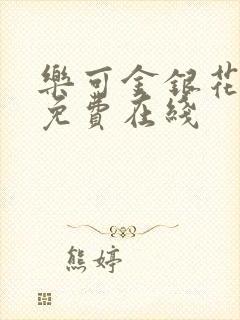 樂可金銀花
免費在綫
熊婷